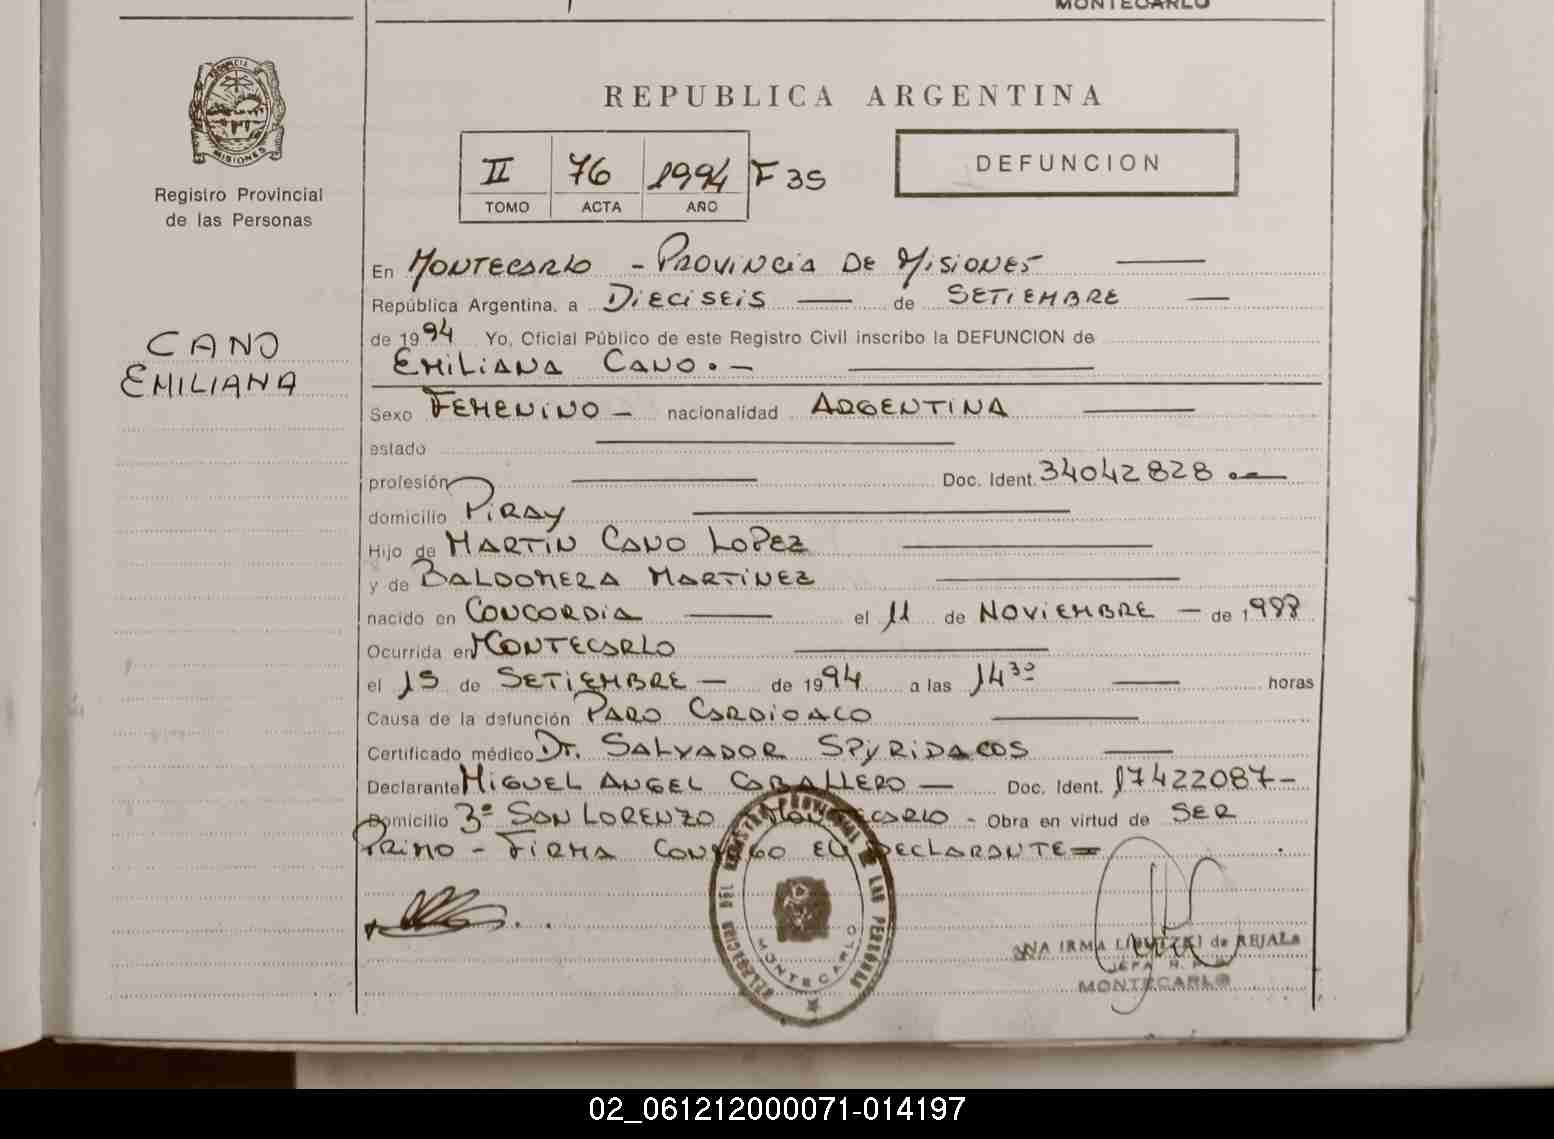 MONTECARLO
REPUBLICA ARGENTINA
PROVINCIA DE
MISIONES
Registro Provincial
de las Personas
II 76 1994 F 35
TOMO ACTA AÑO
DEFUNCION
En MONTECARLO - PROVINCIA DE MISIONES
República Argentina, a DIECISEIS de SETIEMBRE
de 1994 Yo, Oficial Público de este Registro Civil inscribo la DEFUNCION de
CANO
EMILIANA
EMILIANA CANO. -
Sexo FEMENINO - nacionalidad ARGENTINA
estado
profesión Doc. Ident. 34042828
domicilio PIRAY
Hijo de MARTIN CANO LOPEZ
y de BALDOMERA MARTINEZ
nacido en CONCORDIA el 11 de NOVIEMBRE - de 1988
Ocurrida en MONTECARLO
el 15 de SETIEMBRE - de 1994 a las 14 30 horas
Causa de la defunción PARO CARDIOACO
Certificado médico Dr. SALVADOR SPYRIDACOS
Declarante MIGUEL ANGEL CABALLERO - Doc. Ident. 17422087-
Domicilio 3º SAN LORENZO MONTECARLO - Obra en virtud de SER
PRIMO - FIRMA CONMIGO EL DECLARANTE=
DELEGACION DEL REGISTRO PROVINCIAL DE LAS PERSONAS
MONTECARLO
ANA IRMA de REJALA
JEFA R. P.
MONTECARLO
02_061212000071-014197